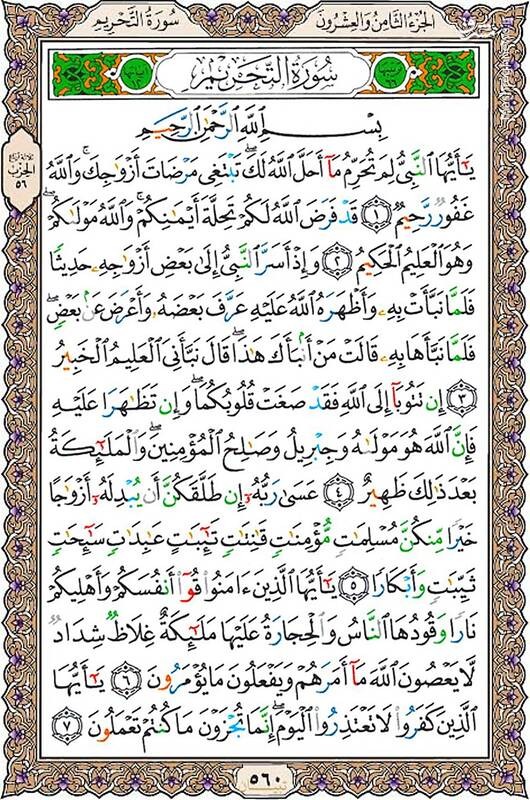 سُورَةُ التَّحْرِيمِ الجُزْءُ الثَّامِنُ وَالْعِشْرُونَ
سُورَةُ التَّحْرِيمِ
بِسْمِ اللَّهِ الرَّحْمَٰنِ الرَّحِيمِ
يَٰٓأَيُّهَا ٱلنَّبِىُّ لِمَ تُحَرِّمُ مَآ أَحَلَّ ٱللَّهُ لَكَ ۖ تَبْتَغِى مَرْضَاتَ أَزْوَٰجِكَ ۚ وَٱللَّهُ
غَفُورٌ رَّحِيمٌ ١ قَدْ فَرَضَ ٱللَّهُ لَكُمْ تَحِلَّةَ أَيْمَٰنِكُمْ ۚ وَٱللَّهُ مَوْلَىٰكُمْ ۖ
وَهُوَ ٱلْعَلِيمُ ٱلْحَكِيمُ ٢ وَإِذْ أَسَرَّ ٱلنَّبِىُّ إِلَىٰ بَعْضِ أَزْوَٰجِهِۦ حَدِيثًا
فَلَمَّا نَبَّأَتْ بِهِۦ وَأَظْهَرَهُ ٱللَّهُ عَلَيْهِ عَرَّفَ بَعْضَهُۥ وَأَعْرَضَ عَنۢ بَعْضٍ ۖ
فَلَمَّا نَبَّأَهَا بِهِۦ قَالَتْ مَنْ أَنۢبَأَكَ هَٰذَا ۖ قَالَ نَبَّأَنِىَ ٱلْعَلِيمُ ٱلْخَبِيرُ
٣ إِن تَتُوبَآ إِلَى ٱللَّهِ فَقَدْ صَغَتْ قُلُوبُكُمَا ۖ وَإِن تَظَٰهَرَا عَلَيْهِ
فَإِنَّ ٱللَّهَ هُوَ مَوْلَىٰهُ وَجِبْرِيلُ وَصَٰلِحُ ٱلْمُؤْمِنِينَ ۖ وَٱلْمَلَٰٓئِكَةُ
بَعْدَ ذَٰلِكَ ظَهِيرٌ ٤ عَسَىٰ رَبُّهُۥٓ إِن طَلَّقَكُنَّ أَن يُبْدِلَهُۥٓ أَزْوَٰجًا
خَيْرًا مِّنكُنَّ مُسْلِمَٰتٍ مُّؤْمِنَٰتٍ قَٰنِتَٰتٍ تَٰٓئِبَٰتٍ عَٰبِدَٰتٍ سَٰٓئِحَٰتٍ
ثَيِّبَٰتٍ وَأَبْكَارًا ٥ يَٰٓأَيُّهَا ٱلَّذِينَ ءَامَنُوا۟ قُوٓا۟ أَنفُسَكُمْ وَأَهْلِيكُمْ
نَارًا وَقُودُهَا ٱلنَّاسُ وَٱلْحِجَارَةُ عَلَيْهَا مَلَٰٓئِكَةٌ غِلَاظٌ شِدَادٌ
لَّا يَعْصُونَ ٱللَّهَ مَآ أَمَرَهُمْ وَيَفْعَلُونَ مَا يُؤْمَرُونَ ٦ يَٰٓأَيُّهَا
ٱلَّذِينَ كَفَرُوا۟ لَا تَعْتَذِرُوا۟ ٱلْيَوْمَ ۖ إِنَّمَا تُجْزَوْنَ مَا كُنتُمْ تَعْمَلُونَ ٧
الحزب
٥٦
٥٦٠